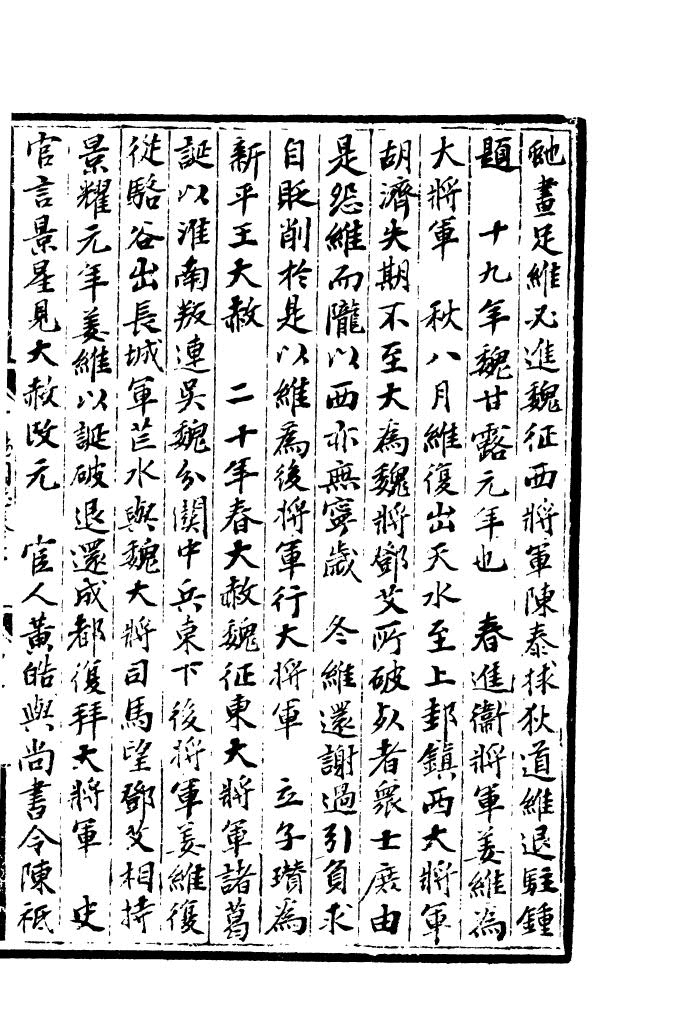 虵畫足維必進魏征西將軍陳泰捄狄道維退駐鍾
題　十九年魏甘露元年也　春進衞將軍姜維為
大將軍　秋八月維復出天水至上邽鎮西大將軍
胡濟失期不至大為魏將鄧艾所破死者衆士庶由
是怨維而隴以西亦無寧歲　冬維還謝過引負求
自貶削於是以維為後將軍行大將軍　立子瓚為
新平王大赦　二十年春大赦魏征東大將軍諸葛
誕以淮南叛連吳魏分關中兵東下後將軍姜維復
從駱谷出長城軍芒水與魏大將司馬望鄧艾相持
景耀元年姜維以誕破退還成都復拜大將軍　史
官言景星見大赦改元　宦人黃皓與尚書令陳袛